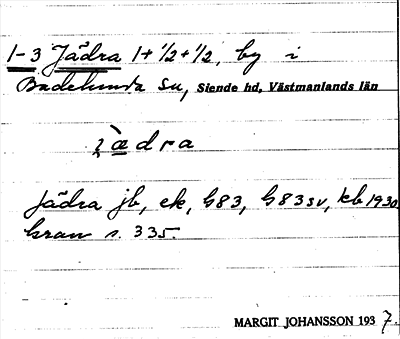 1-3 Jädra 1+1/2+1/2, by i
Badelunda sn, Siende hd, Västmanlands län
j̀ædra
Jädra jb, ek, G83, G83sv, kb 1930
kran s. 335.
MARGIT JOHANSSON 1937.